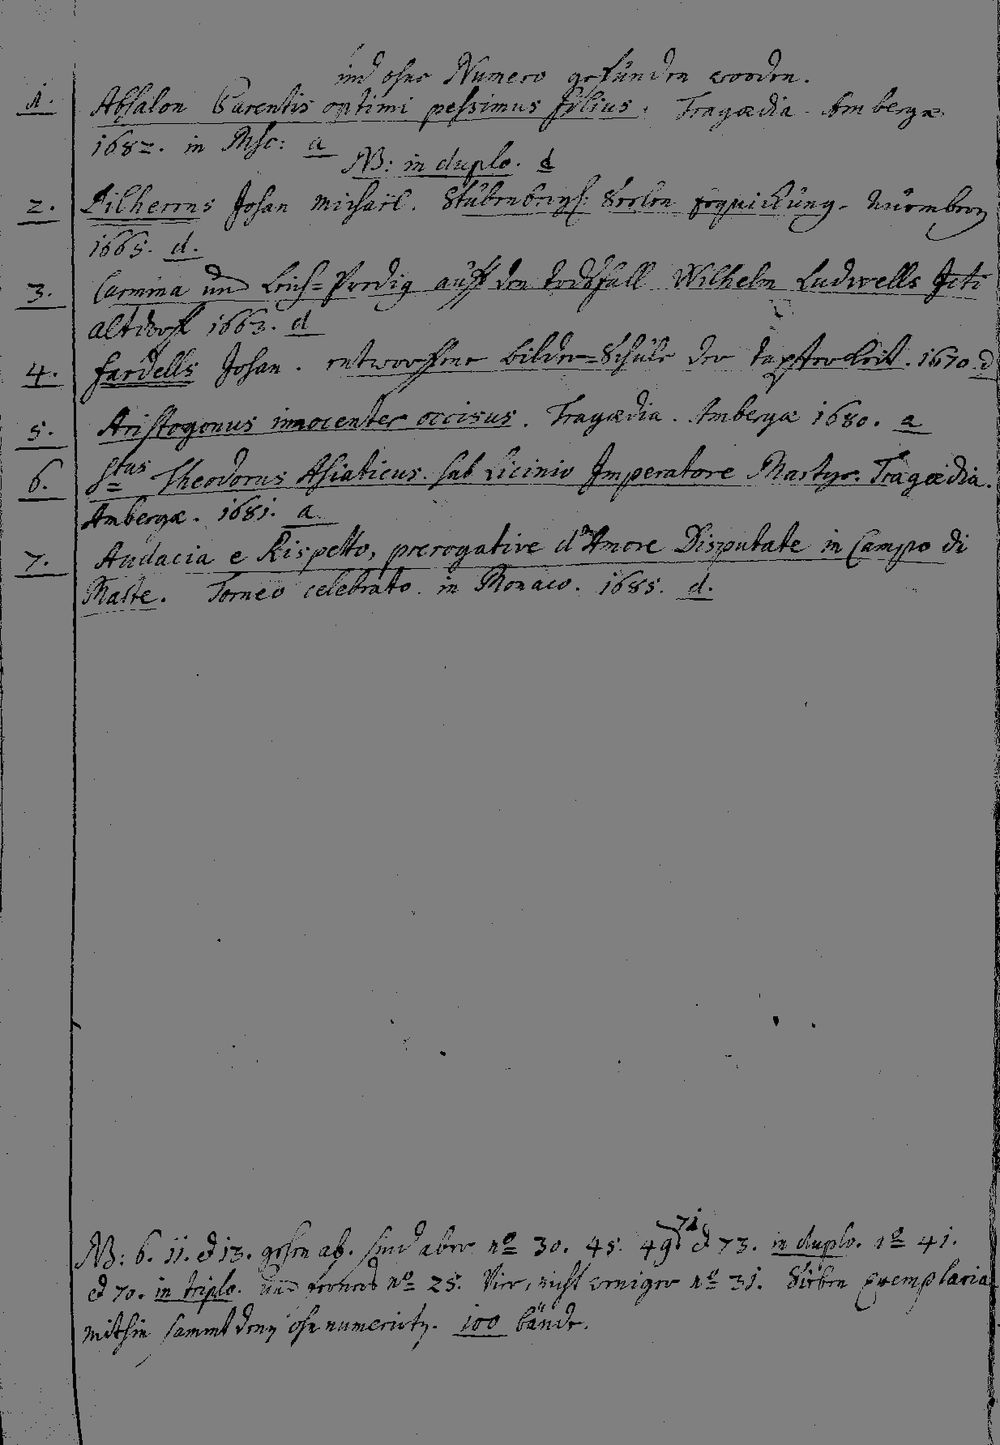 sind ohne Numero gefunden worden.
1. Absalon Parentis optimi pessimus filius. Tragædia. Ambergæ
1682. in Msc: a
NB: in duplo. d
2. Dilherens Johan Michael. Seelen erquickung. Nürmberg
1665. d.
3. Carmina und Leich=Predig auff den todtsfall Wilhelm Ludwells Jcti
altdorff 1663. d
4. fardells Johan. entworffene bilder=Schüle der tapfferkeit. 1670. d
5. Aristogonus innocenter occisus. Tragædia. Ambergæ 1680. a
6. Stus Theodorus Asiaticus sub Licinio Imperatore Martyr. Tragœdia.
Ambergæ. 1681. a
7. Audacia e Rispetto, prerogative d'Amore Disputate in Campo di
Marte. Torneo celebrato in Monaco. 1685. d.
NB: 6. 11. & 13. gehen ab. sind aber no 30. 45. 49. 71 & 73. in duplo. no 41.
& 70. in triplo. und no 25. Vier, nicht weniger no 31. Sieben Exemplaria
mithin sammt den ohnnumerirten. 100 bände.